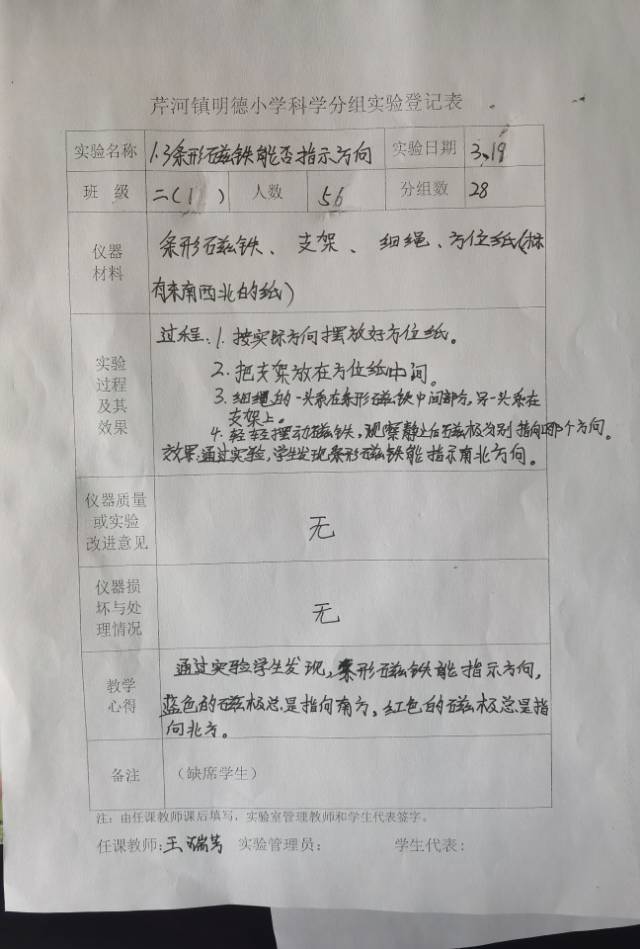 芹河镇明德小学科学分组实验登记表
实验名称 1.3条形磁铁能否指示方向 实验日期 3.19
班 级 二(1) 人数 56 分组数 28
仪器
材料
条形石磁铁、支架、细绳、方位纸(标
有东南西北的纸)
实验
过程
及其
效果
过程:1.按实际方向摆放好方位纸。
2.把支架放在方位纸中间。
3.细绳的一头系在条形磁铁中间部分,另一头系在
支架上。
4.轻轻摆动磁铁,观察静止后磁极分别指向哪个方向。
效果:通过实验,学生发现条形磁铁能指示南北方向。
仪器质量
或实验
改进意见
无
仪器损
坏与处
理情况
无
教学
心得
通过实验学生发现,条形磁铁能指示方向,
蓝色的磁极总是指向南方,红色的磁极总是指
向北方。
备注 (缺席学生)
注:由任课教师课后填写,实验室管理教师和学生代表签字。
任课教师:王瑞芳 实验管理员: 学生代表: